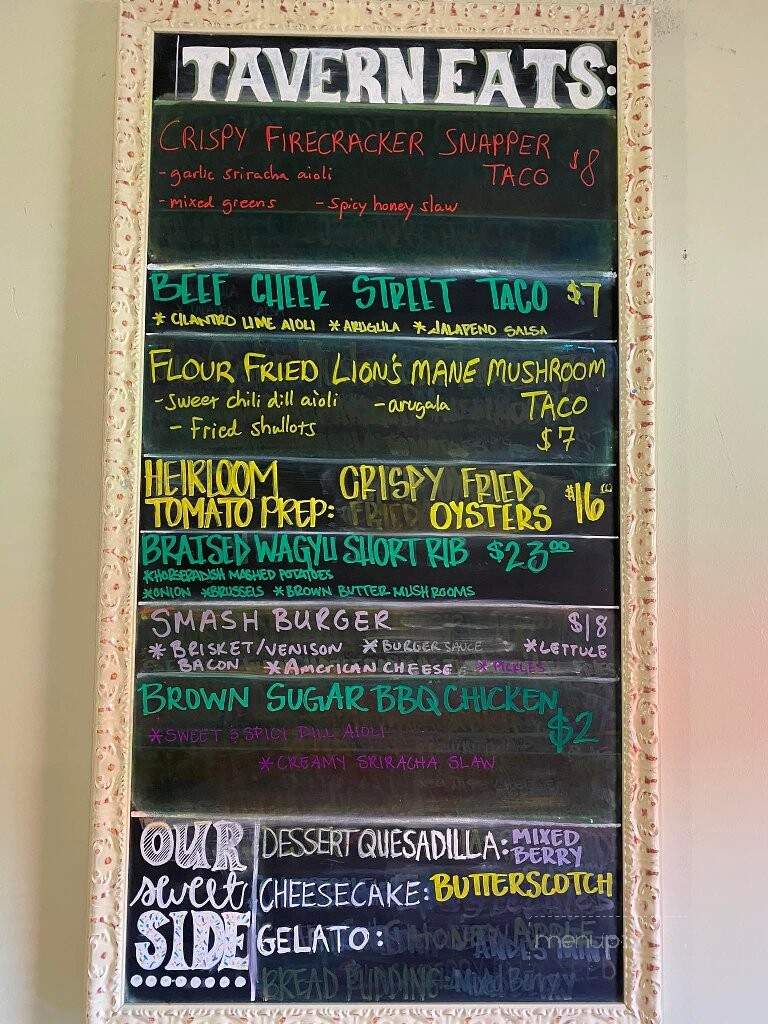 TAVERN EATS:
CRISPY FIRECRACKER SNAPPER
TACO $8
- garlic sriracha aioli
- mixed greens - spicy honey slaw
BEEF CHEEK STREET TACO $7
* CILANTRO LIME AIOLI * ARUGULA * JALAPENO SALSA
FLOUR FRIED LION'S MANE MUSHROOM
- sweet chili dill aioli - arugala TACO
- Fried shullots $7
HEIRLOOM CRISPY FRIED
TOMATO PREP: FRIED OYSTERS $16
BRAISED WAGYU SHORT RIB $23.00
*HORSERADISH MASHED POTATOES
*ONION *BRUSSELS *BROWN BUTTER MUSHROOMS
SMASH BURGER $18
* BRISKET/VENISON * BURGER SAUCE * LETTUCE
BACON * AMERICAN CHEESE * PICKLES
BROWN SUGAR BBQ CHICKEN
$2
*SWEET & SPICY DILL AIOLI
*CREAMY SRIRACHA SLAW
OUR
sweet
SIDE
DESSERT QUESADILLA: MIXED
BERRY
CHEESECAKE: BUTTERSCOTCH
GELATO:
ANDES MINT
BREAD PUDDING: Mixed Berry
menup